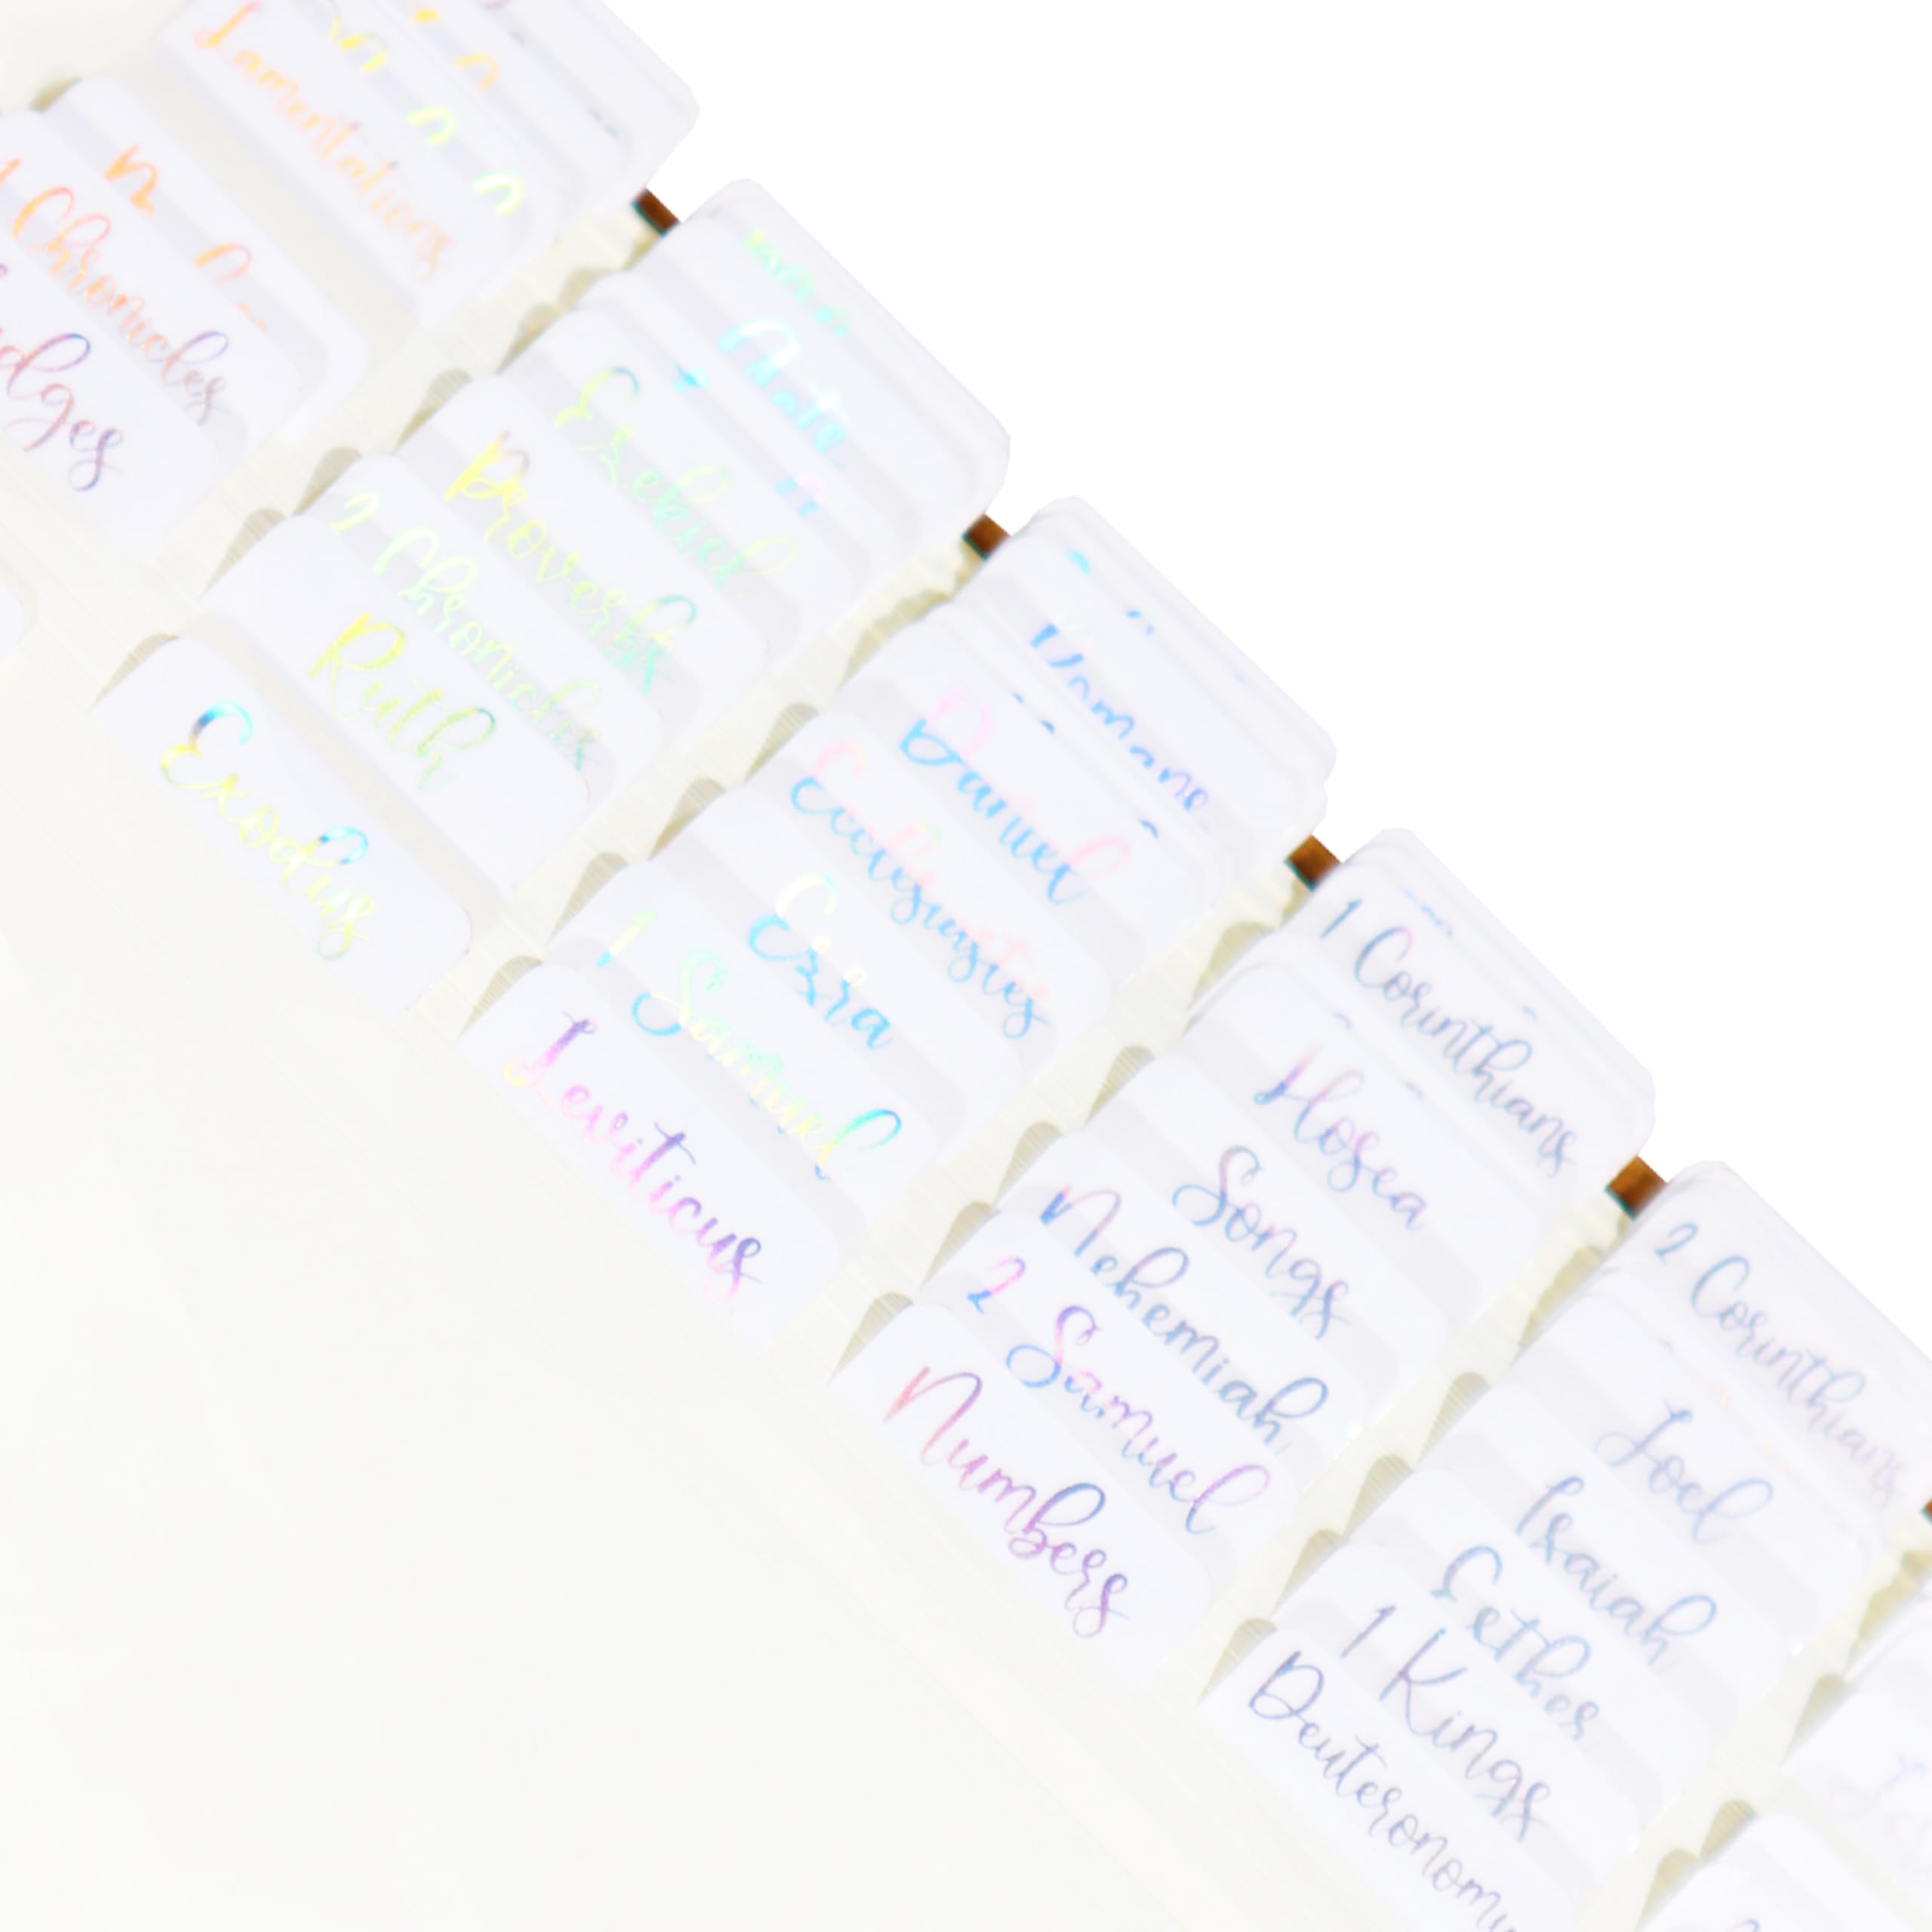 Lamentations
1 Chronicles
Ezekiel
Proverbs
2 Chronicles
Ruth
Exodus
Romans
Daniel
Ecclesiastes
Ezra
1 Samuel
Leviticus
1 Corinthians
Hosea
Songs
Nehemiah
2 Samuel
Numbers
2 Corinthians
Joel
Isaiah
Esther
1 Kings